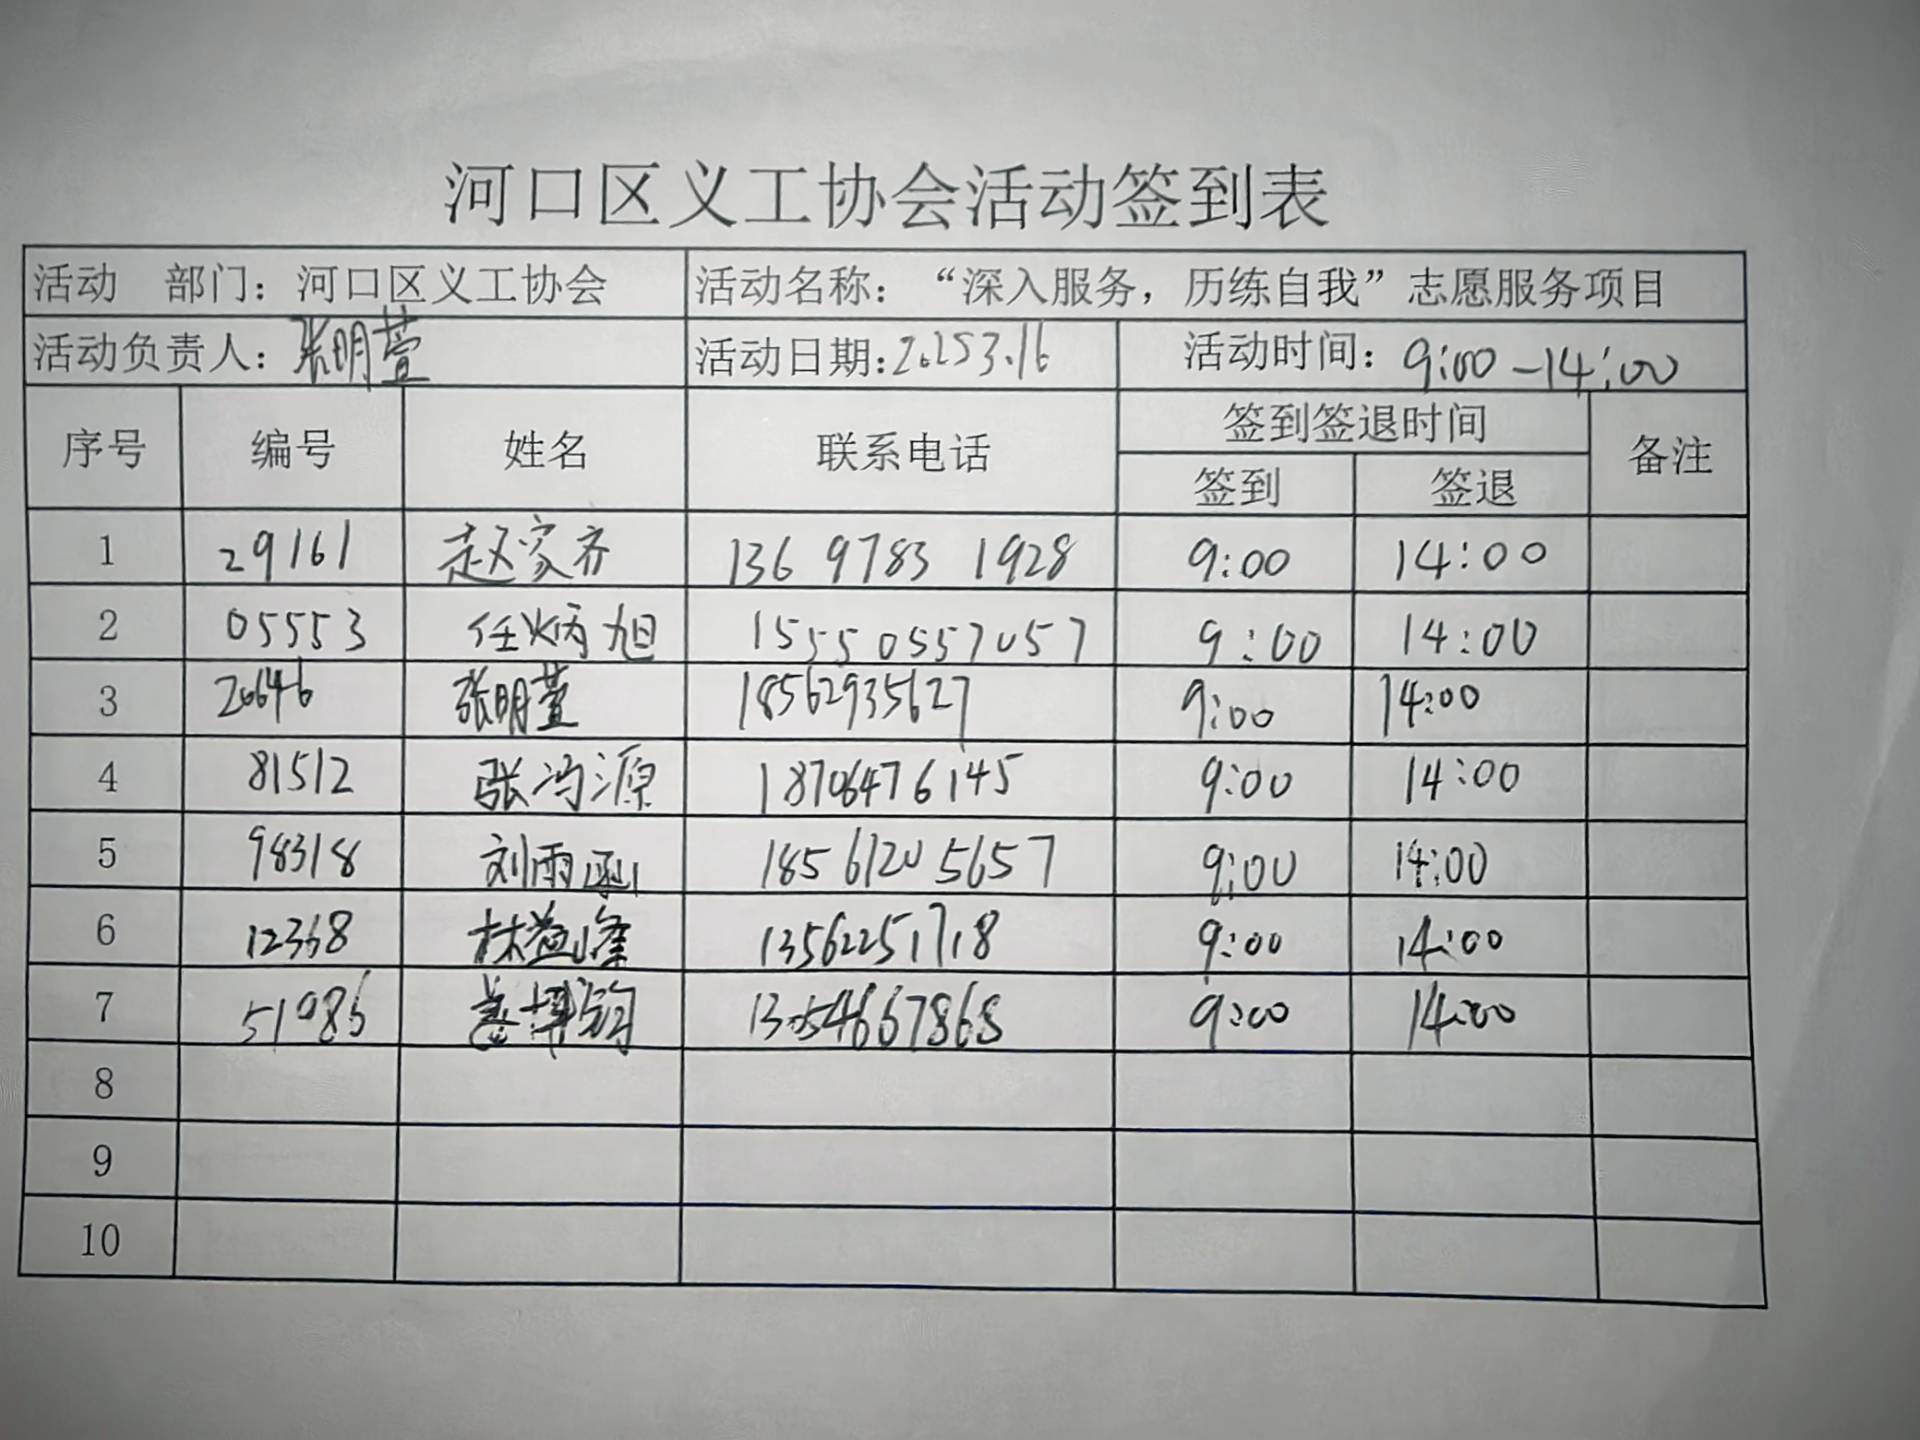 河口区义工协会活动签到表
活动 部门：河口区义工协会 活动名称：“深入服务，历练自我”志愿服务项目
活动负责人：张明萱 活动日期：2025.3.16 活动时间：9:00-14:00
序号 编号 姓名 联系电话 签到签退时间 备注
签到 签退
1 29161 赵家齐 136 9783 1928 9:00 14:00
2 05553 任炳旭 15550557057 9:00 14:00
3 20646 张明萱 18562935627 9:00 14:00
4 81512 张冯源 18706476145 9:00 14:00
5 98318 刘雨函 18561205657 9:00 14:00
6 12368 林益峰 13562251718 9:00 14:00
7 51986 13054667868 9:00 14:00
8
9
10